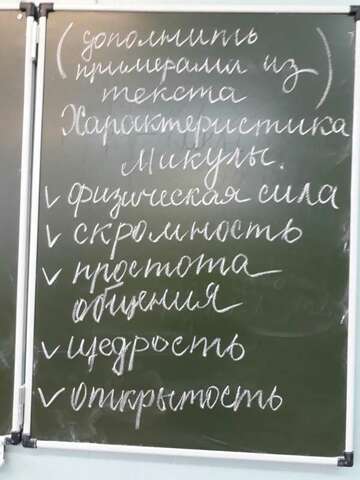 (дополнить
примерами из
текста)
Характеристика
Микулы.
✓ физическая сила
✓ скромность
✓ простота
общения
✓ щедрость
✓ открытость